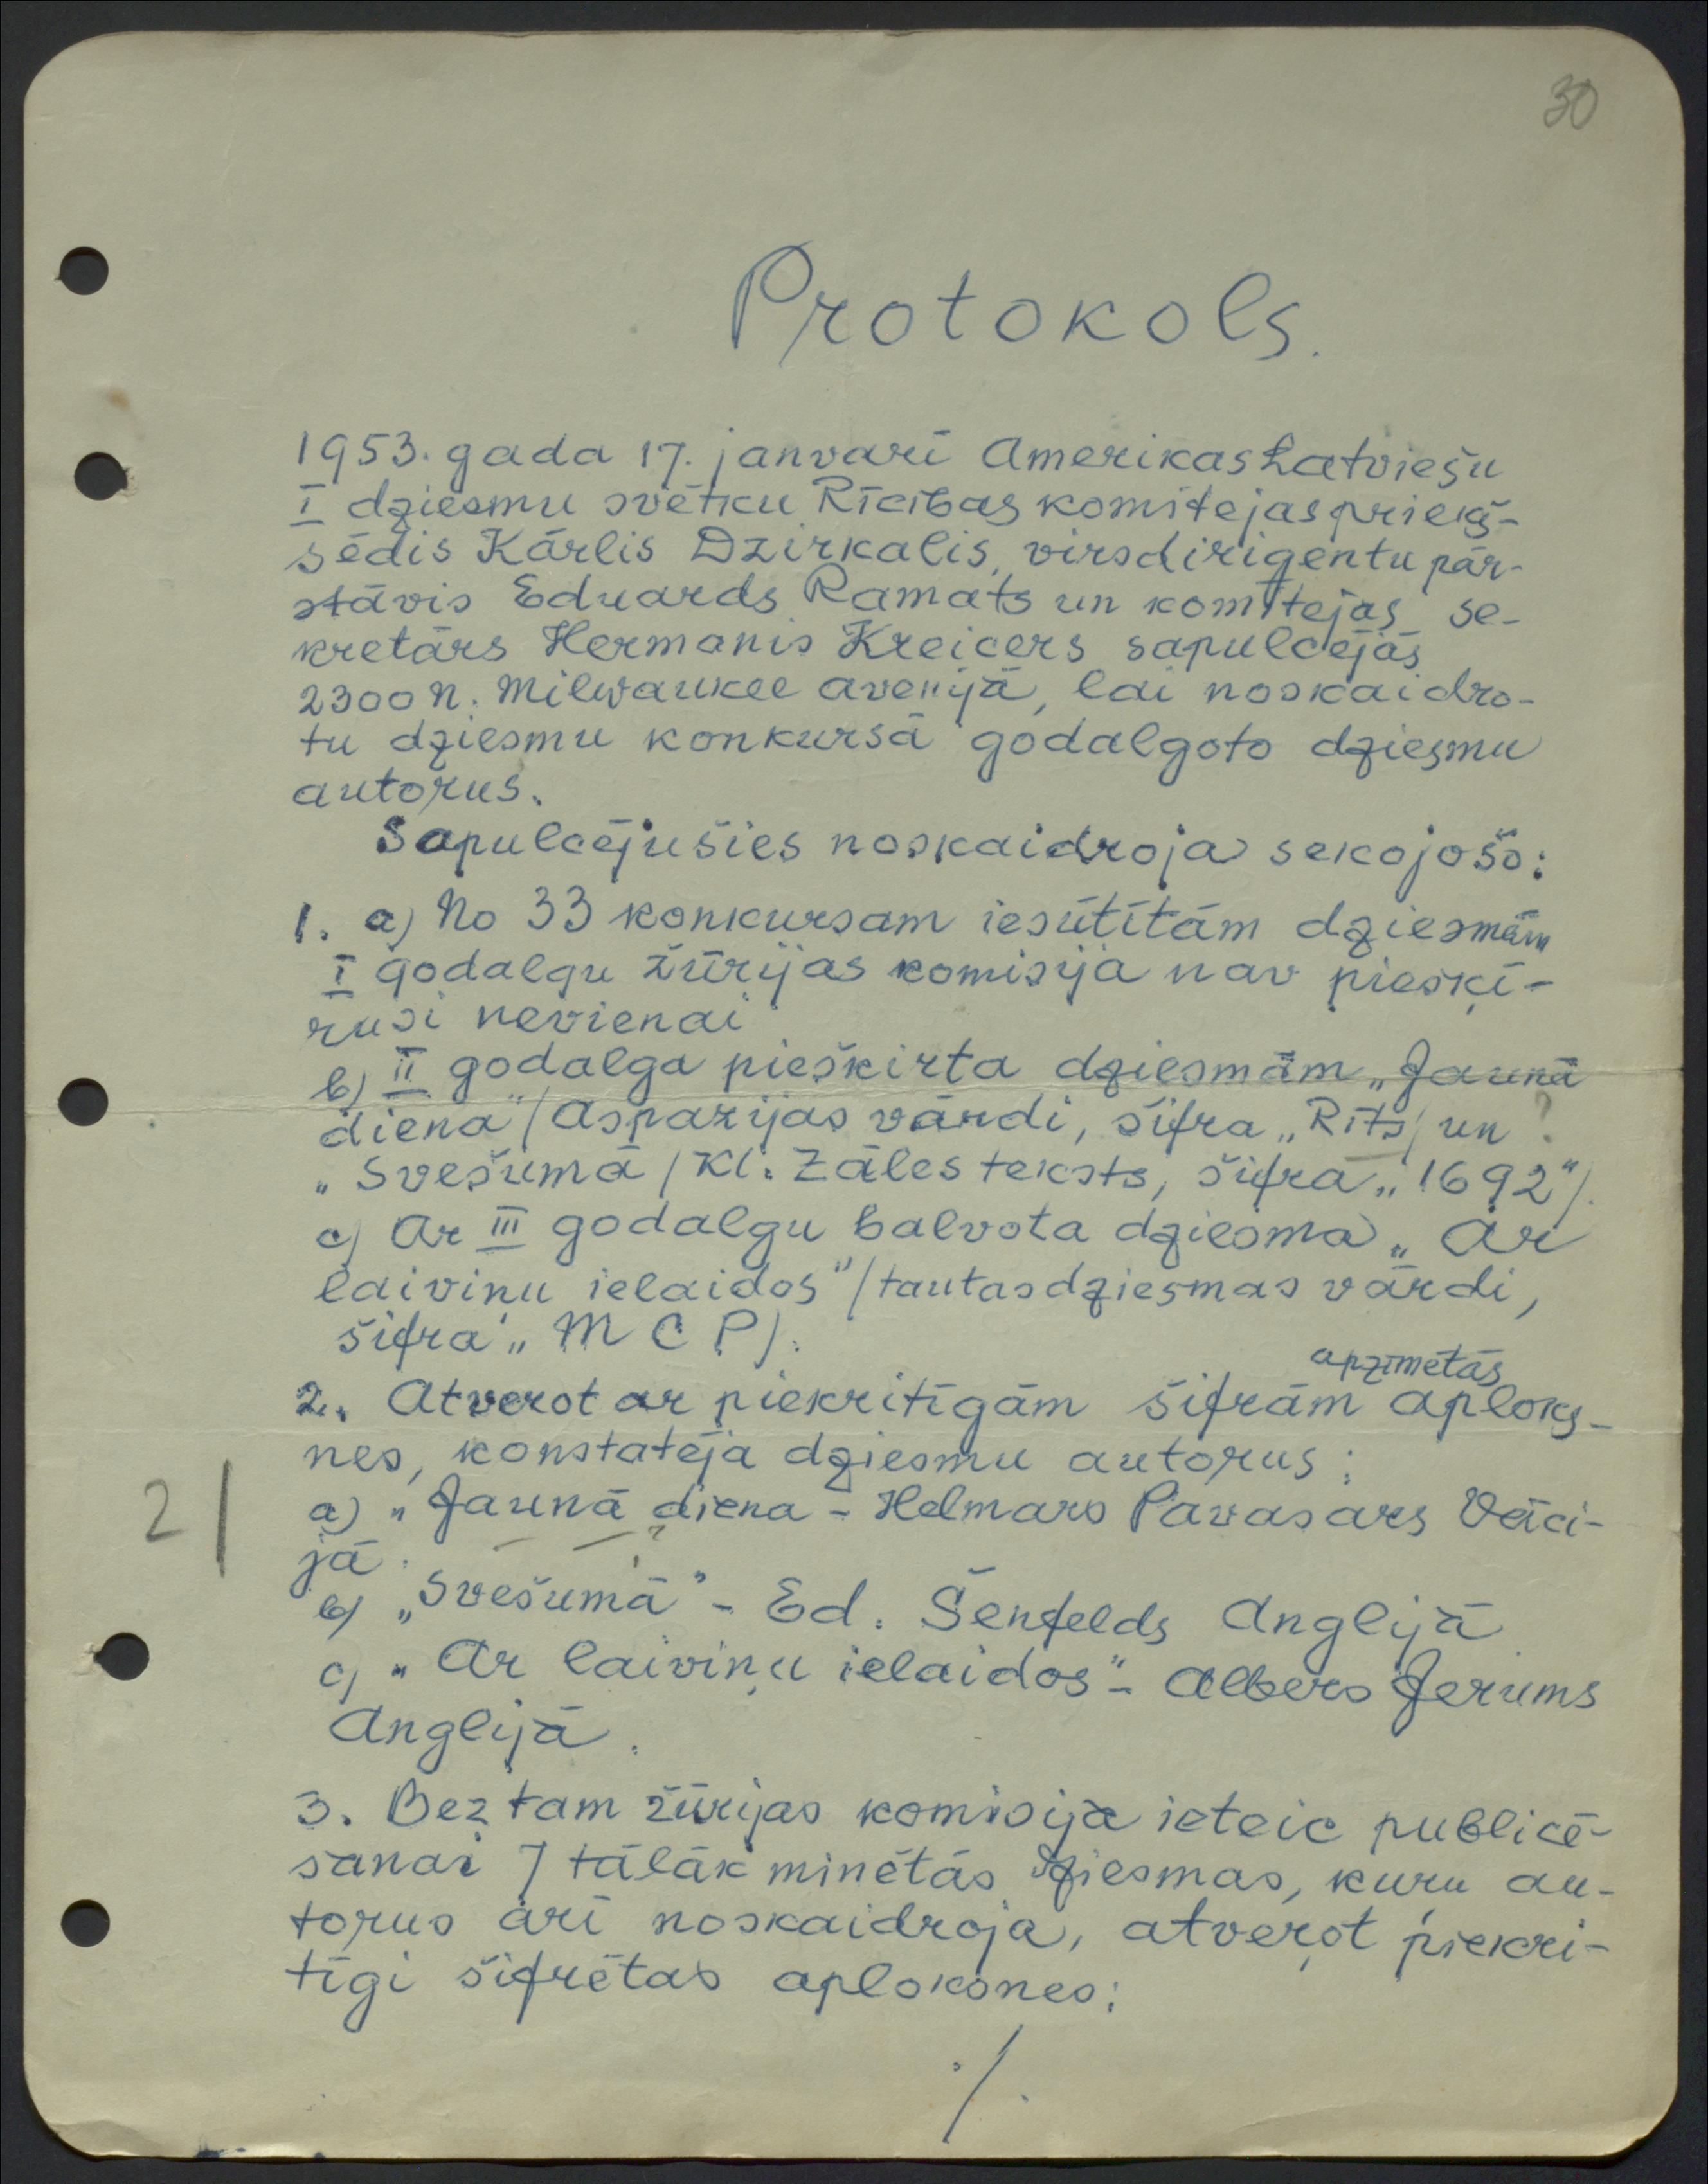 30
Protokols.
1953. gada 17. janvarī Amerikas Latviešu
I dziesmu svētku Rīcības komitejas priekš-
sēdis Kārlis Dzirkalis, virsdirigentu pār-
stāvis Eduards Ramats un komitejas se-
kretārs Hermanis Kreicers sapulcējās
2300 N. Milwaukee avenijā, lai noskaidro-
tu dziesmu konkursā godalgoto dziesmu
autorus.
Sapulcējušies noskaidroja sekojošo:
1. a) No 33 konkursam iesūtītām dziesmām
I godalgu žūrijas komisija nav piešķī-
rusi nevienai
b) II godalga piešķirta dziesmām „Jaunā
diena" /Aspazijas vārdi, šifra „Rīts/ un ?
„Svešumā /Kl. Zāles teksts, šifra „1692"/.
c) Ar III godalgu balvota dziesma „Ar
laiviņu ielaidos" /tautasdziesmas vārdi,
šifra „M C P/.
apzīmētās
2. Atverot ar piekritīgām šifrām aploks-
nes, konstatēja dziesmu autorus:
21
a) „Jaunā diena - Helmars Pavasars Vāci-
jā. ?
b) „Svešumā" - Ed. Šenfelds Anglijā
c) „Ar laiviņu ielaidos" - Albers Jerums
Anglijā.
3. Bez tam žūrijas komisija ieteic publicē-
šanai 7 tālāk minētās dziesmas, kuru au-
torus arī noskaidroja, atveŗot piekri-
tīgi šifrētas aploksnes:
./.